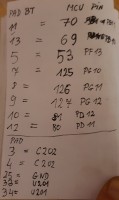 PAD BT MCU PIN
11 = 70
13 = 69
5 = 53 PF13
7 = 125 PG10
8 = 126 PG11
9 = 127 PG12
10 = PD12
12 = 80 PD11
PAD
3 = C202
4 = C202
25 = GND
33 = U201
34 = U201